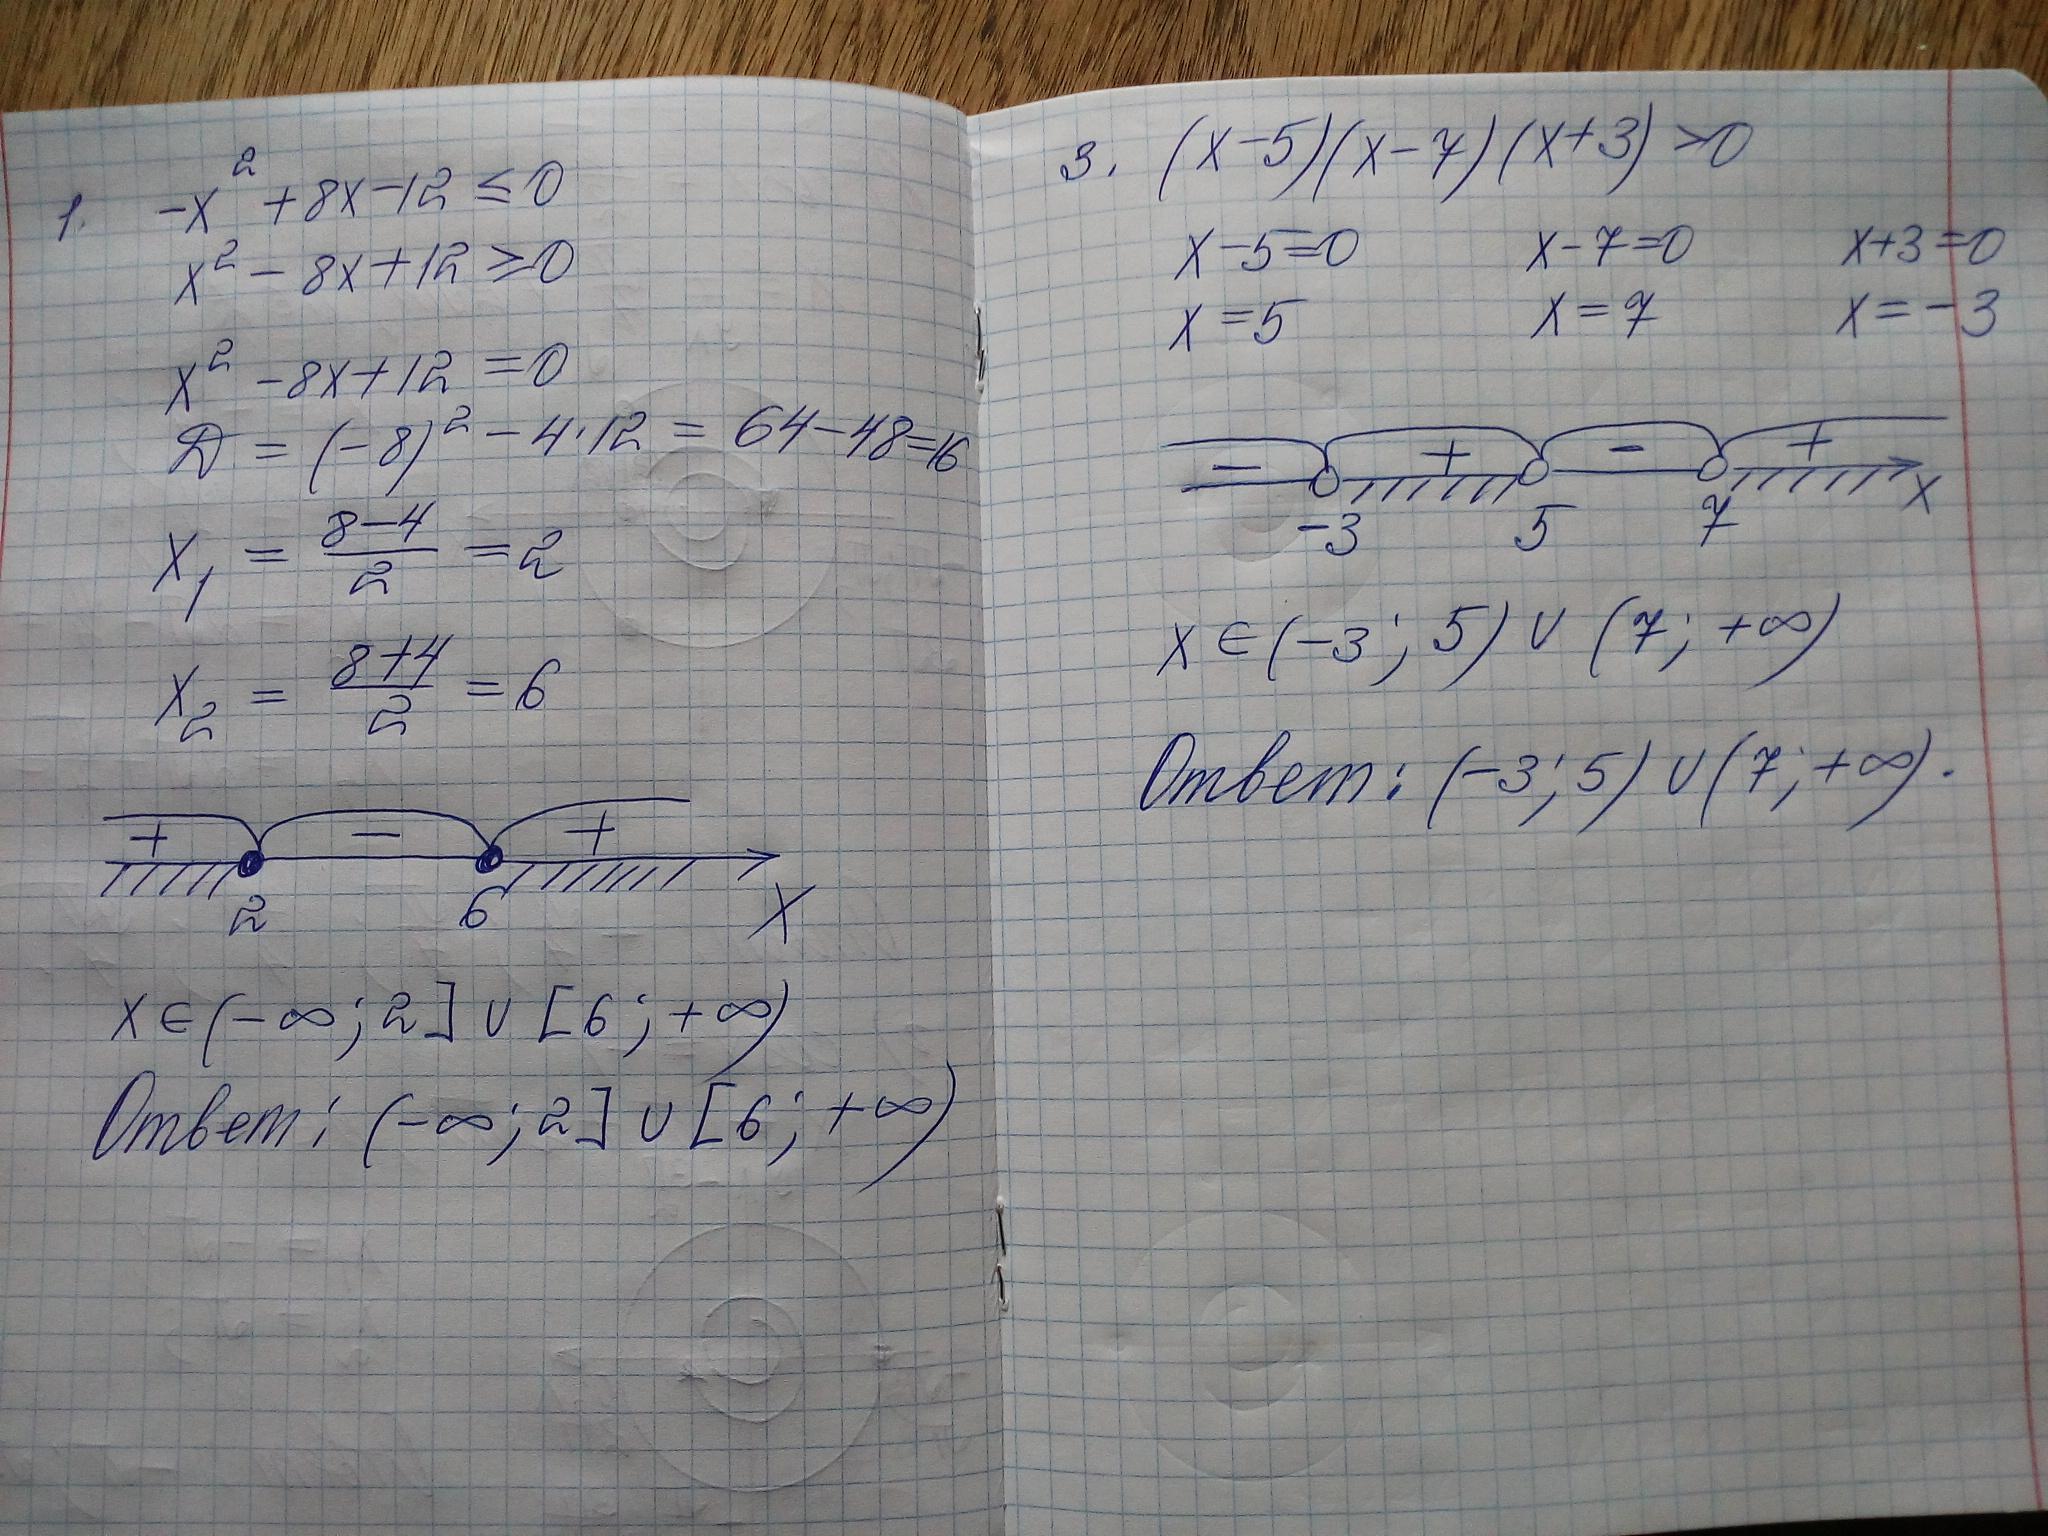 1. -x² + 8x - 12 ≤ 0
x² - 8x + 12 ≥ 0
x² - 8x + 12 = 0
D = (-8)² - 4·12 = 64 - 48 = 16
x₁ = (8-4)/2 = 2
x₂ = (8+4)/2 = 6
+ - +
2 6 x
x ∈ (-∞; 2] ∪ [6; +∞)
Ответ: (-∞; 2] ∪ [6; +∞)
3. (x-5)(x-7)(x+3) > 0
x-5=0 x-7=0 x+3=0
x=5 x=7 x=-3
- + - +
-3 5 7 x
x ∈ (-3; 5) ∪ (7; +∞)
Ответ: (-3; 5) ∪ (7; +∞).